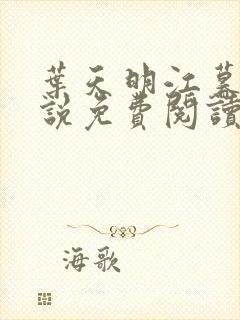 葉天明江慕
說免費閱讀
海歌